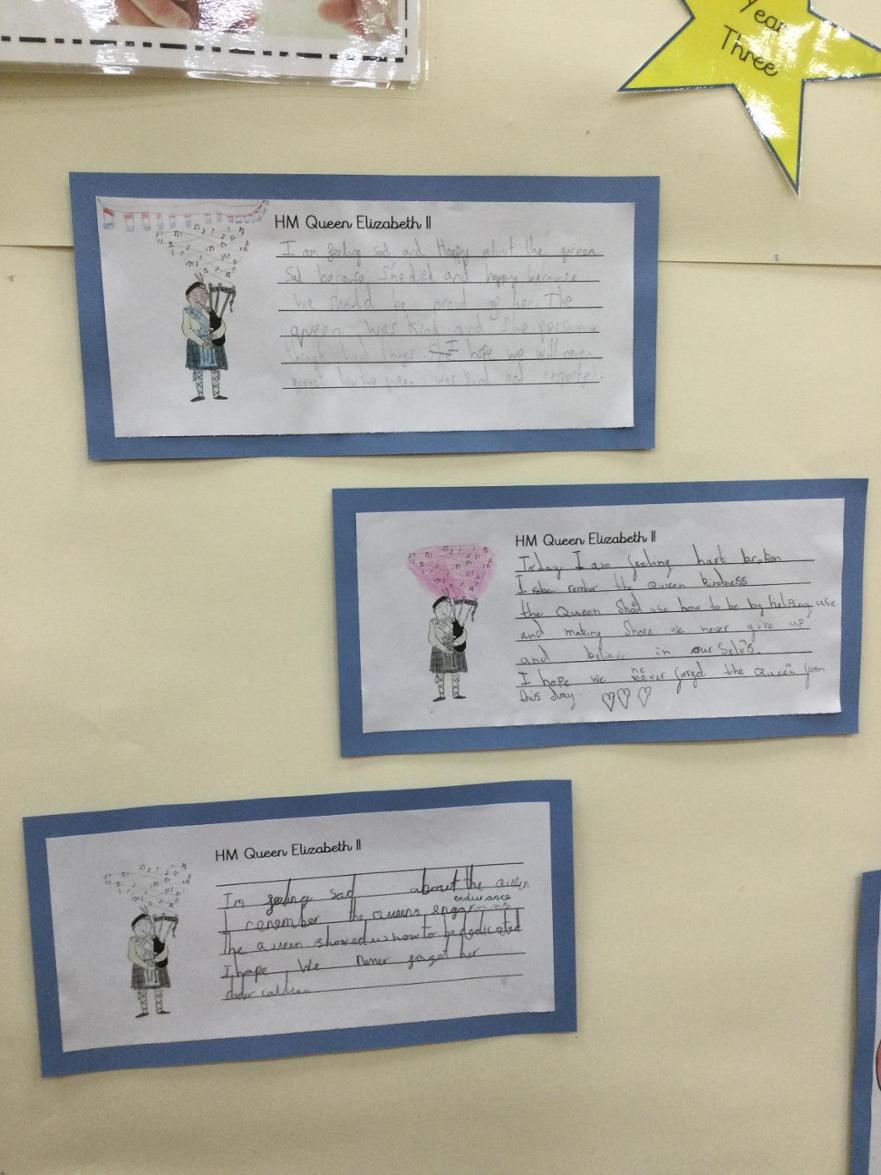 Year
Three
HM Queen Elizabeth II
I am feeling sad and Happy about the queen
Sad because She died and happy because
We should be proud of her. The
queen was kind and She
through had things. I hope we will never
the queen wor kind and
HM Queen Elizabeth II
Today I am feeling hart broken
I rember the Queen kindness
the Queen Shod use how to be by helping use
and making Shore we never give up
and believe in our Selvs.
I hope we never forgd the Queen from
this day. ♡♡♡
HM Queen Elizabeth II
I'm feeling sad about the Queen
endurance
I remember the queens
The Queen showed us how to be dedicated
I hope We Never forget her